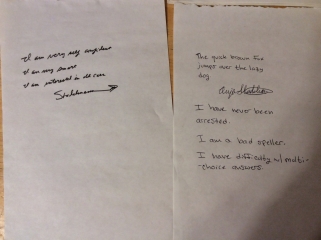 I am very self confident
I am very smart
I am interest in
The quick brown fox
jumps over the lazy
dog
I have never been
arrested.
I am a bad speller.
I have difficulty w/ multi-
choice answers.